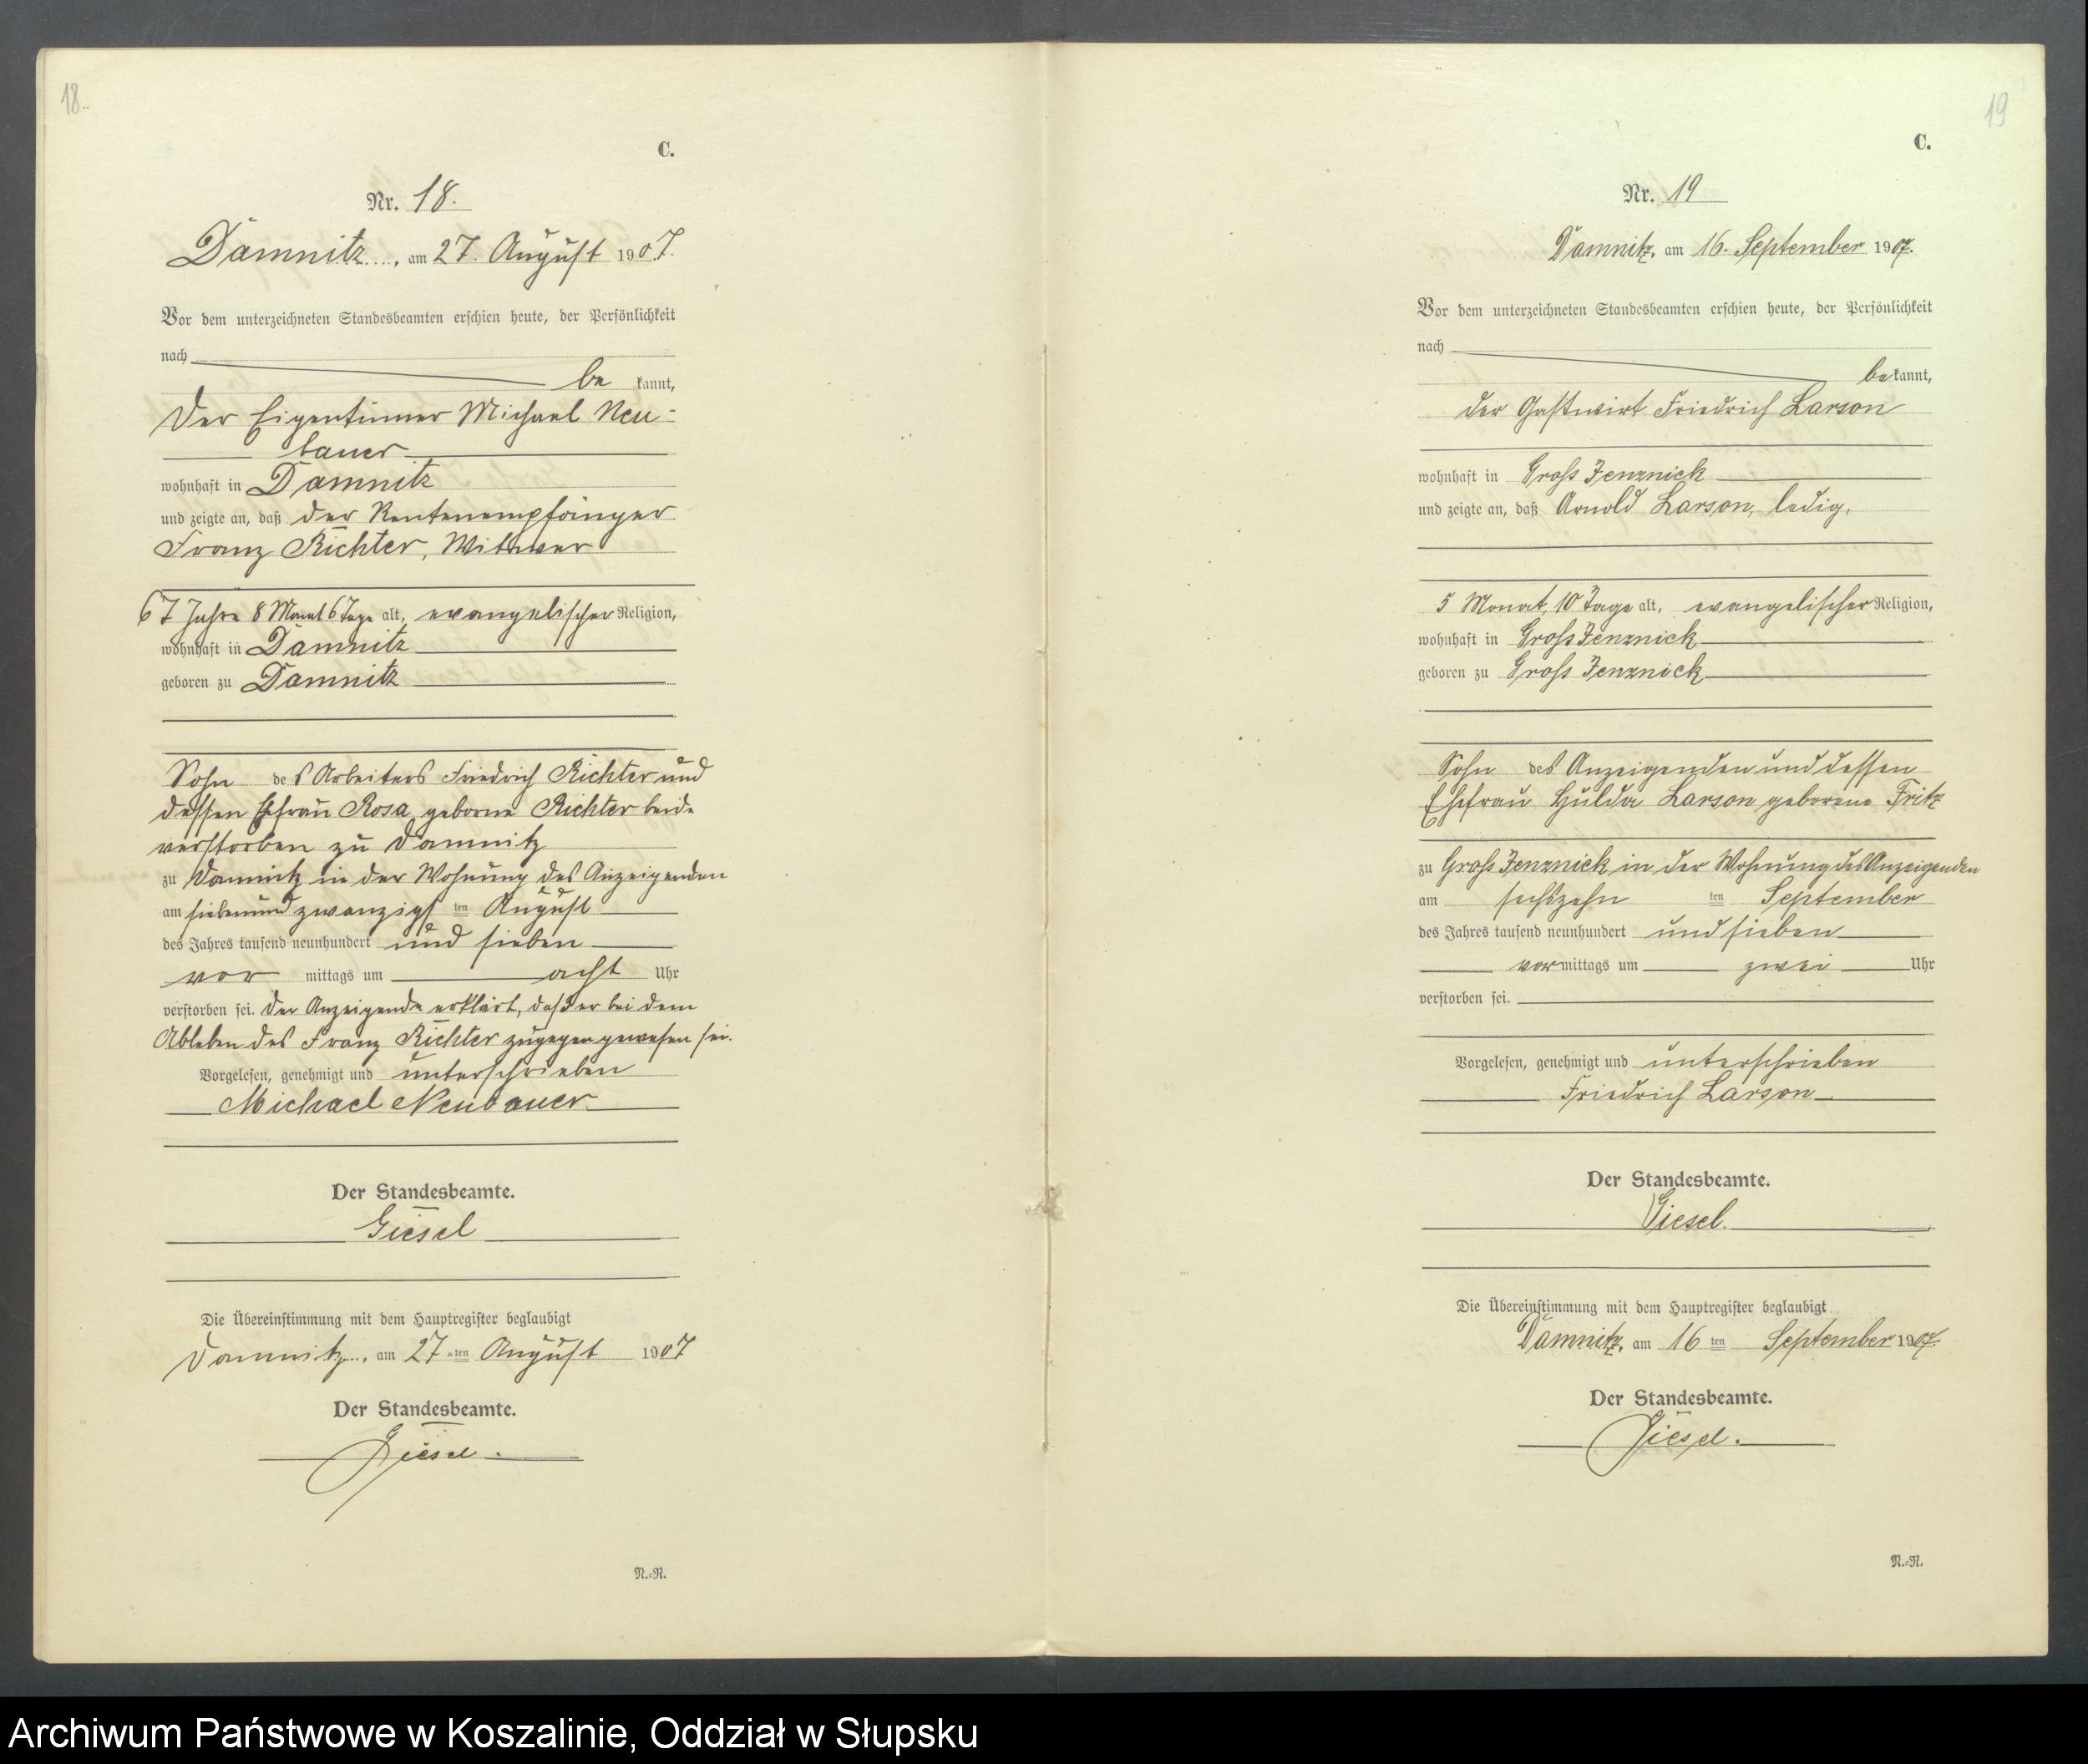 18.
C.
Nr. 18.
Damnitz, am 27. August 1907.
Vor dem unterzeichneten Standesbeamten erschien heute, der Persönlichkeit
nach
be kannt,
Der Eigentümer Michael Neu-
bauer
wohnhaft in Damnitz
und zeigte an, daß der Rentenempfänger
Franz Richter, Witwer
67 Jahre 8 Monat 6 Tage alt, evangelischer Religion,
wohnhaft in Damnitz
geboren zu Damnitz
Sohn des Arbeiters Friedrich Richter und
dessen Ehefrau Rosa geborne Richter beide
verstorben zu Damnitz
zu Damnitz in der Wohnung des Anzeigenden
am siebenundzwanzigsten August
des Jahres tausend neunhundert und sieben
vor mittags um acht Uhr
verstorben sei. Der Anzeigende erklärt, daß er bei dem
Ableben des Franz Richter zugegen gewesen sei.
Vorgelesen, genehmigt und unterschrieben
Michael Neubauer
Der Standesbeamte.
Giesel
Die Übereinstimmung mit dem Hauptregister beglaubigt
Damnitz, am 27 ten August 1907
Der Standesbeamte.
Giesel.
N.-N.
19
C.
Nr. 19
Damnitz, am 16. September 1907.
Vor dem unterzeichneten Standesbeamten erschien heute, der Persönlichkeit
nach
bekannt,
der Gastwirt Friedrich Larson
wohnhaft in Groß Jenznick
und zeigte an, daß Arnold Larson, ledig,
5 Monat, 10 Tage alt, evangelischer Religion,
wohnhaft in Groß Jenznick
geboren zu Groß Jenznick
Sohn des Anzeigenden und dessen
Ehefrau Hulda Larson geborene Fritz
zu Groß Jenznick in der Wohnung des Anzeigenden
am sechszehn ten September
des Jahres tausend neunhundert und sieben
vormittags um zwei Uhr
verstorben sei.
Vorgelesen, genehmigt und unterschrieben
Friedrich Larson
Der Standesbeamte.
Giesel.
Die Übereinstimmung mit dem Hauptregister beglaubigt
Damnitz, am 16 ten September 1907.
Der Standesbeamte.
Giesel.
N.-N.
Archiwum Państwowe w Koszalinie, Oddział w Słupsku